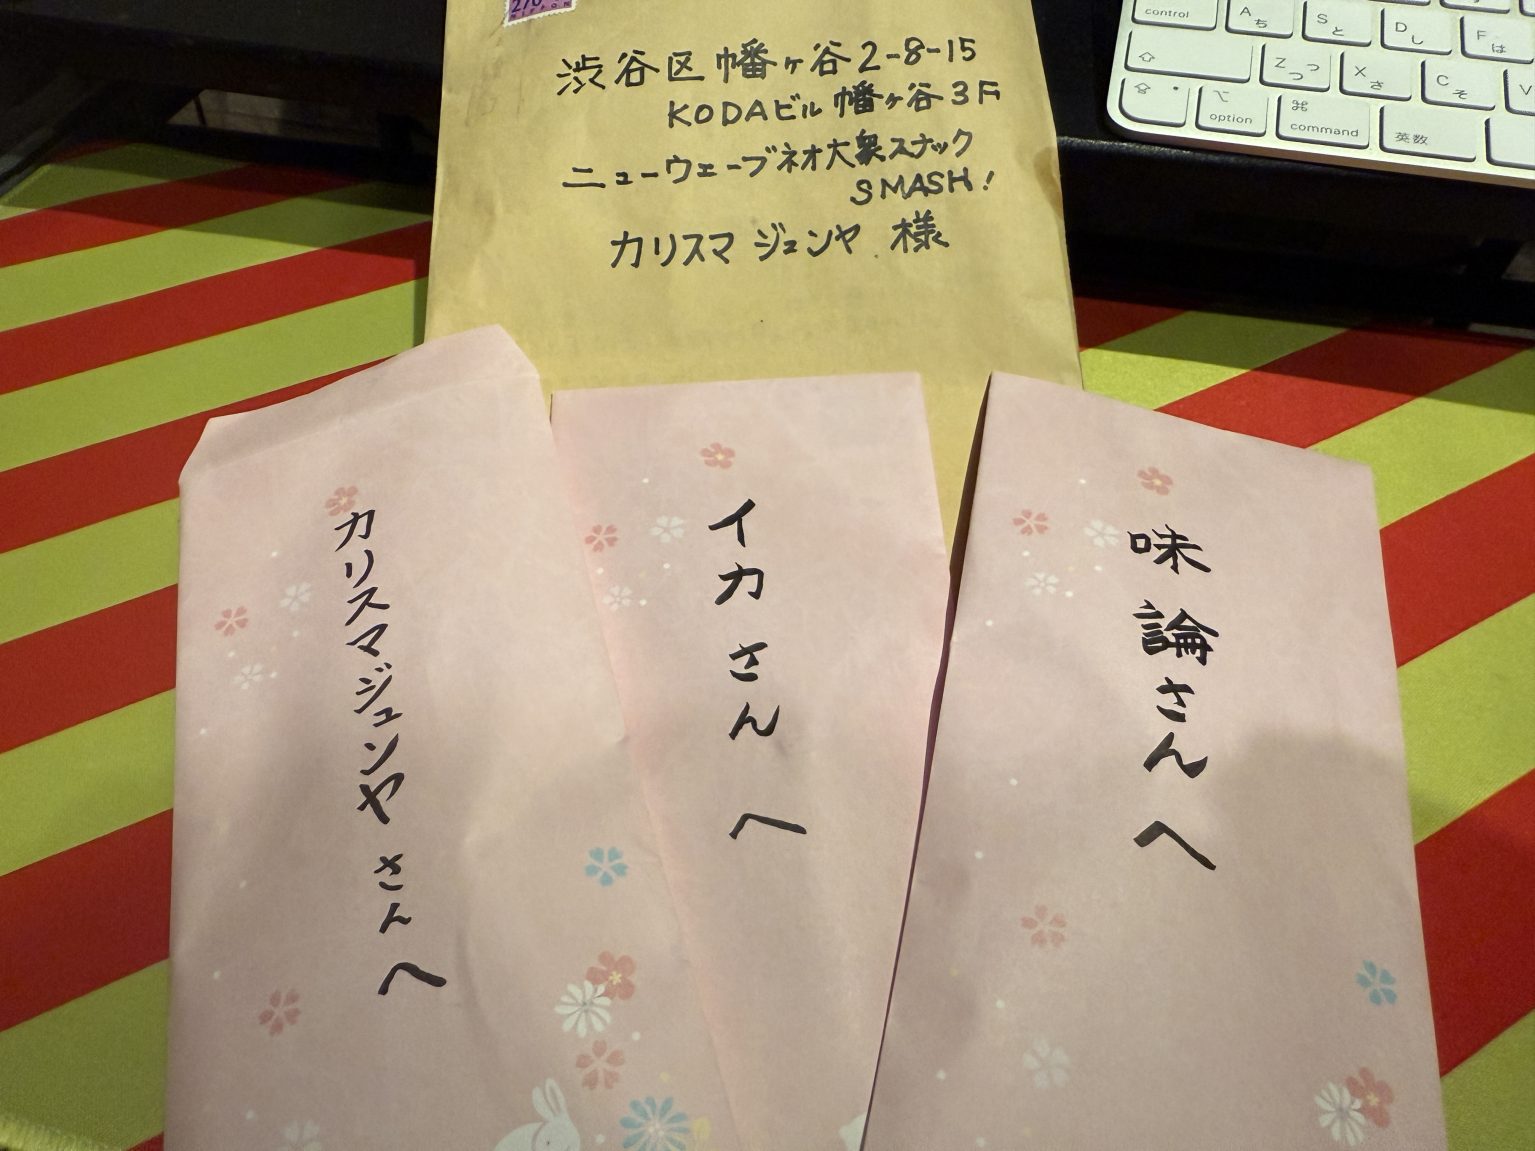 270
NIPPON
渋谷区幡ヶ谷2-8-15
KODAビル幡ヶ谷3F
ニューウェーブネオ大衆スナック
SMASH!
カリスマ ジュンヤ 様
カリスマジュンヤさんへ
イカさんへ
味論さんへ
control
A ち
S と
D し
F は
Z つっ
X さ
C そ
V
option
⌘
command
英数